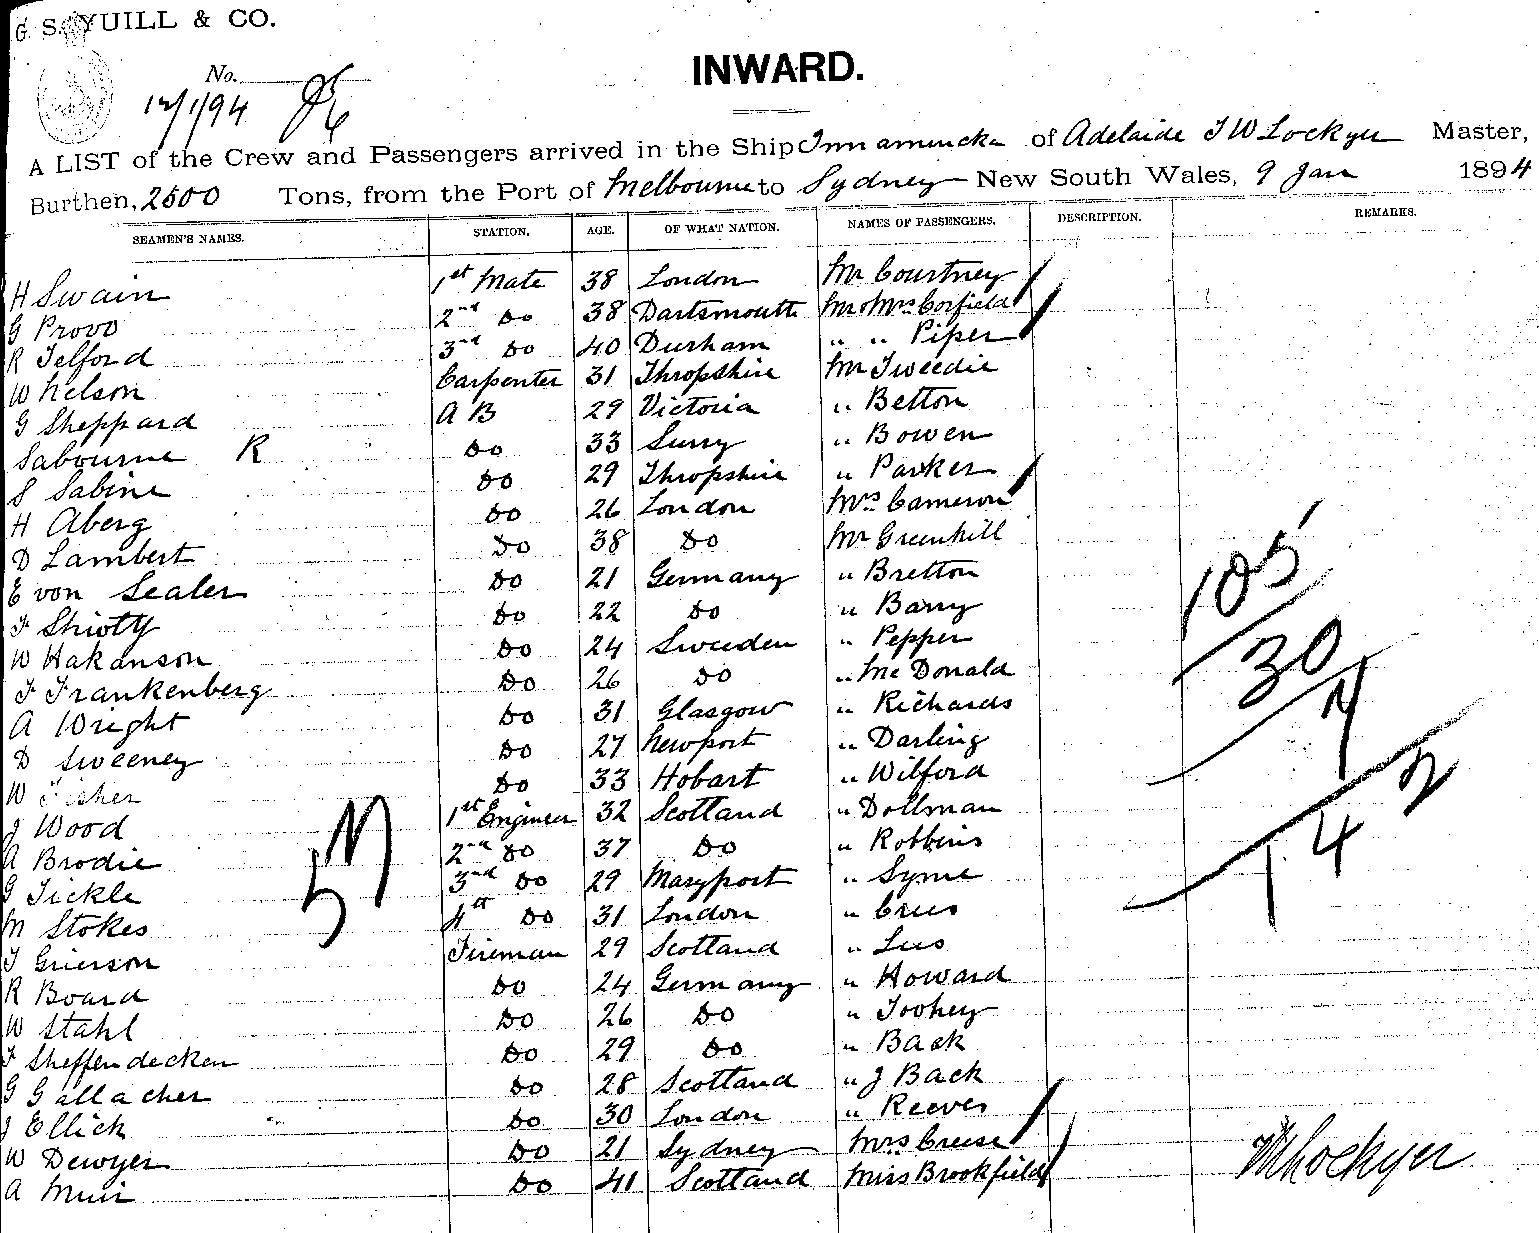 G. S. YUILL & CO.
INWARD.
No.
12/1/94
A LIST of the Crew and Passengers arrived in the Ship Innamincka of Adelaide T W Lockyer Master,
Burthen, 2500 Tons, from the Port of Melbourne to Sydney New South Wales, 9 Jan 1894
SEAMEN'S NAMES. STATION. AGE. OF WHAT NATION. NAMES OF PASSENGERS. DESCRIPTION. REMARKS.
H Swain 1st Mate 38 London Mr Courtney
G Provo 2nd Do 38 Dartsmouth Mr & Mrs Corfield
R Telford 3rd Do 40 Durham " " Piper
W Nelson Carpenter 31 Thropshire Mr Tweedie
G Sheppard A B 29 Victoria " Betton
Sabourne R Do 33 Surry " Bowen
S Sabine Do 29 Thropshire " Parker
H Aberg Do 26 London Mrs Cameron
D Lambert Do 38 Do Mr Greenhill
E von Sealer Do 21 Germany " Bretton
F Do 22 Do " Barry
W Hakanson Do 24 Sweeden " Pepper
F Frankenberg Do 26 Do " McDonald
A Wright Do 31 Glasgow " Richards
D Sweeney Do 27 Newport " Darling
W Fisher Do 33 Hobart " Wilford
J Wood 1st Engineer 32 Scotland " Dollman
A Brodie 2nd Do 37 Do " Robbins
G Tickle 3rd Do 29 Maryport " Syme
M Stokes 4th Do 31 London " Crees
T Grierson Fireman 29 Scotland " Lees
R Board Do 24 Germany " Howard
W Stahl Do 26 Do " Toohey
F Sheffendecken Do 29 Do " Back
G Gallacher Do 28 Scotland " J Back
J Ellick Do 30 London " Reeves
W Dewyer Do 21 Sydney Mrs Creese
A Muir Do 41 Scotland Miss Brookfield
105
30
7
2
14
57
TW Lockyer